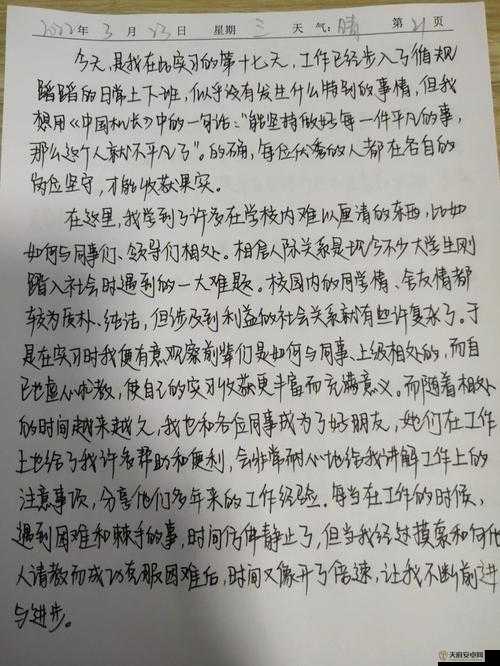 2022年 3月 23日 星期 三 天气:晴 第 21 页
今天,是我在此实习的第十七天,工作已经步入了循规
蹈蹈的日常上下班,似乎没有发生什么特别的事情,但我
想用《中国机长》中的一句话:"能坚持做好每一件平凡的事,
那么这个人就不平凡了"。的确,每位优秀的人都在各自的
岗位坚守,才能收获果实。
在这里,我学到了许多在学校内难以厘清的东西,比如
如何与同事们、领导们相处。相信人际关系是现今不少大学生刚
踏入社会时遇到的一大难题。校园内的同学情、舍友情都
较为质朴、纯洁,但涉及到利益的社会关系就有些许复杂了。于
是在实习时我便有意观察前辈们是如何与同事、上级相处的,而自
己也虚心求教,使自己的实习收获更丰富而充满意义。而随着相处
的时间越来越久,我也和各位同事成为了好朋友,她们在工作
上也给了我许多帮助和便利,会非常耐心地给我讲解工作上的
注意事项,分享他们多年来的工作经验。每当在工作的时候,
遇到困难和棘手的事,时间仿佛静止了,但当我经过摸索和向他
人请教而成功克服困难后,时间又像开了倍速,让我不断前进
与进步。
天府安卓网